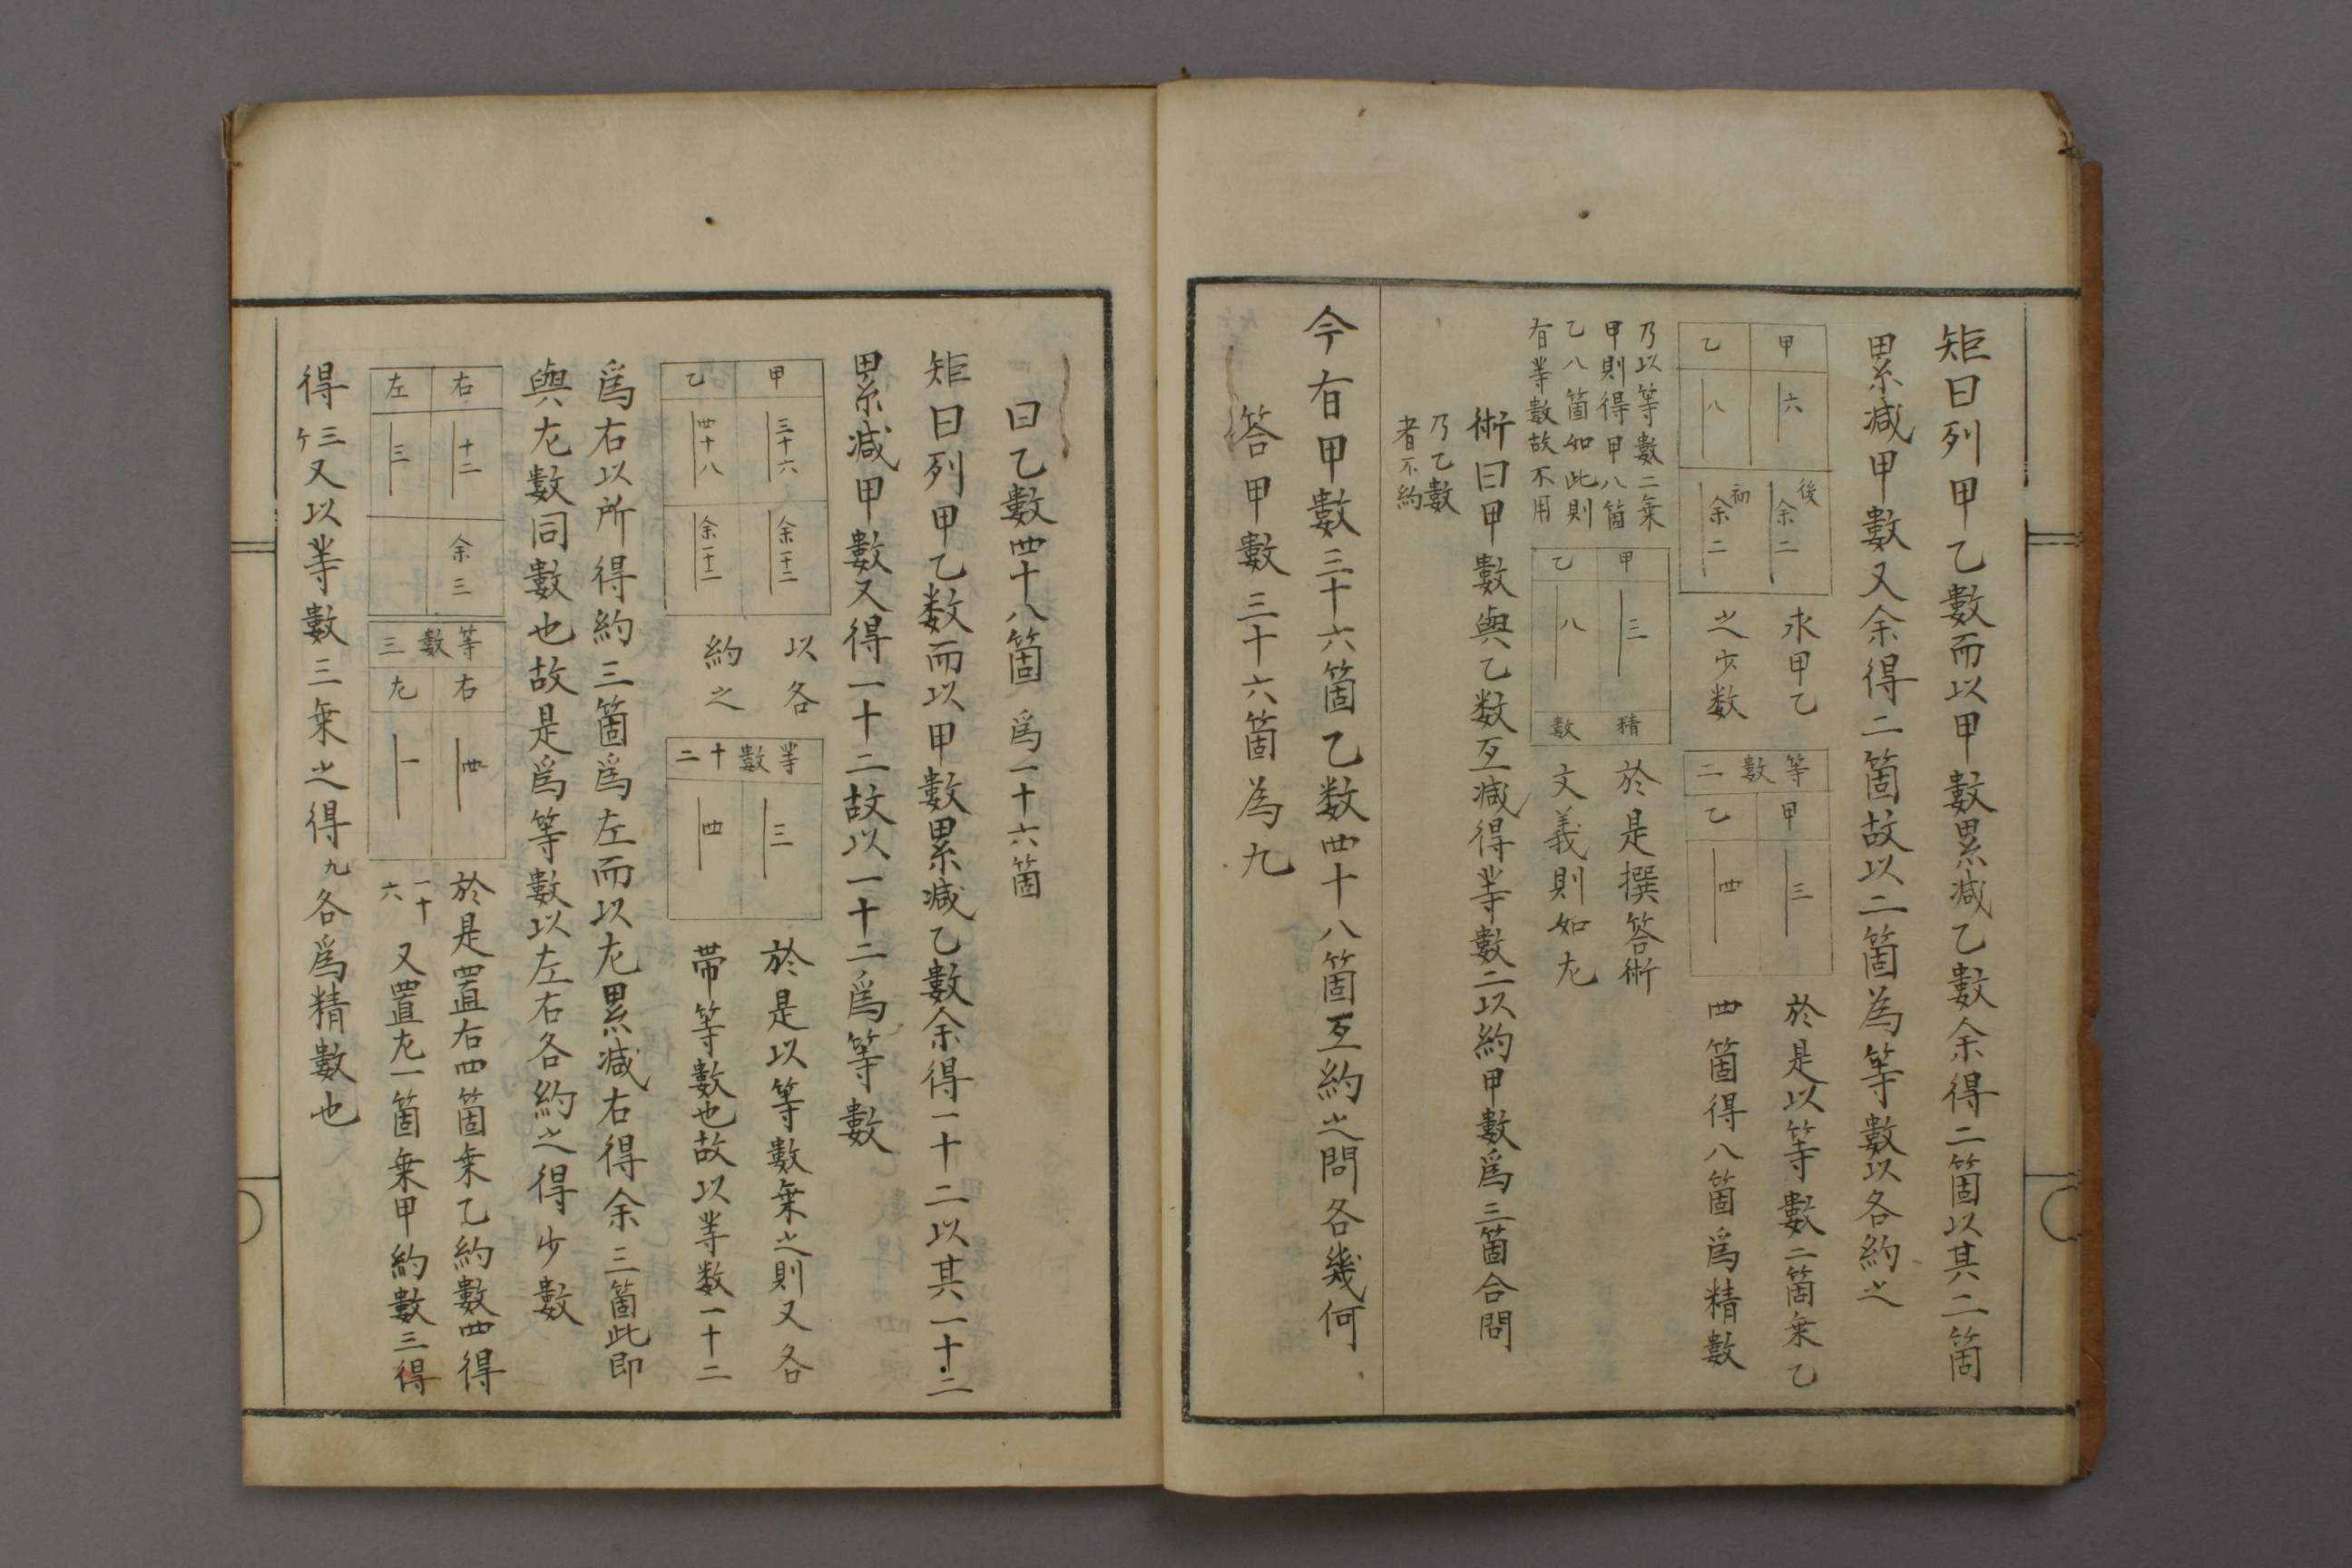 矩曰列甲乙數而以甲數累減乙數余得二箇以其二箇
累減甲數又余得二箇故以二箇為等數以各約之
甲 乙
六 八
後余二 初余二
求甲乙
之少数
等數二
甲 乙
三 四
於是以等數二箇乗乙
四箇得八箇爲精數
乃以等數二乗
甲則得甲八箇
乙八箇如此則
有等數故不用
甲 乙
三 八
精数
於是撰答術
文義則如左
術曰甲數與乙数互減得等數二以約甲數爲三箇合問
乃乙數
者不約
今有甲數三十六箇乙数四十八箇互約之問各幾何
答甲數三十六箇為九
曰乙數四十八箇爲一十六箇
矩曰列甲乙数而以甲數累減乙數余得一十二以其一十二
累減甲數又得一十二故以一十二爲等數
甲 乙
三十六 四十八
余十二 余十二
以各
約之
等數十二
三 四
於是以等數乗之則又各
帯等數也故以等数一十二
爲右以所得約三箇爲左而以左累減右得余三箇此即
與左數同數也故是爲等數以左右各約之得少數
右 左
十二 三
余三
等數三
右 左
四 一
於是置右四箇乗乙約數四得
一十六又置左一箇乗甲約數三得
得三ケ又以等數三乗之得九各爲精數也